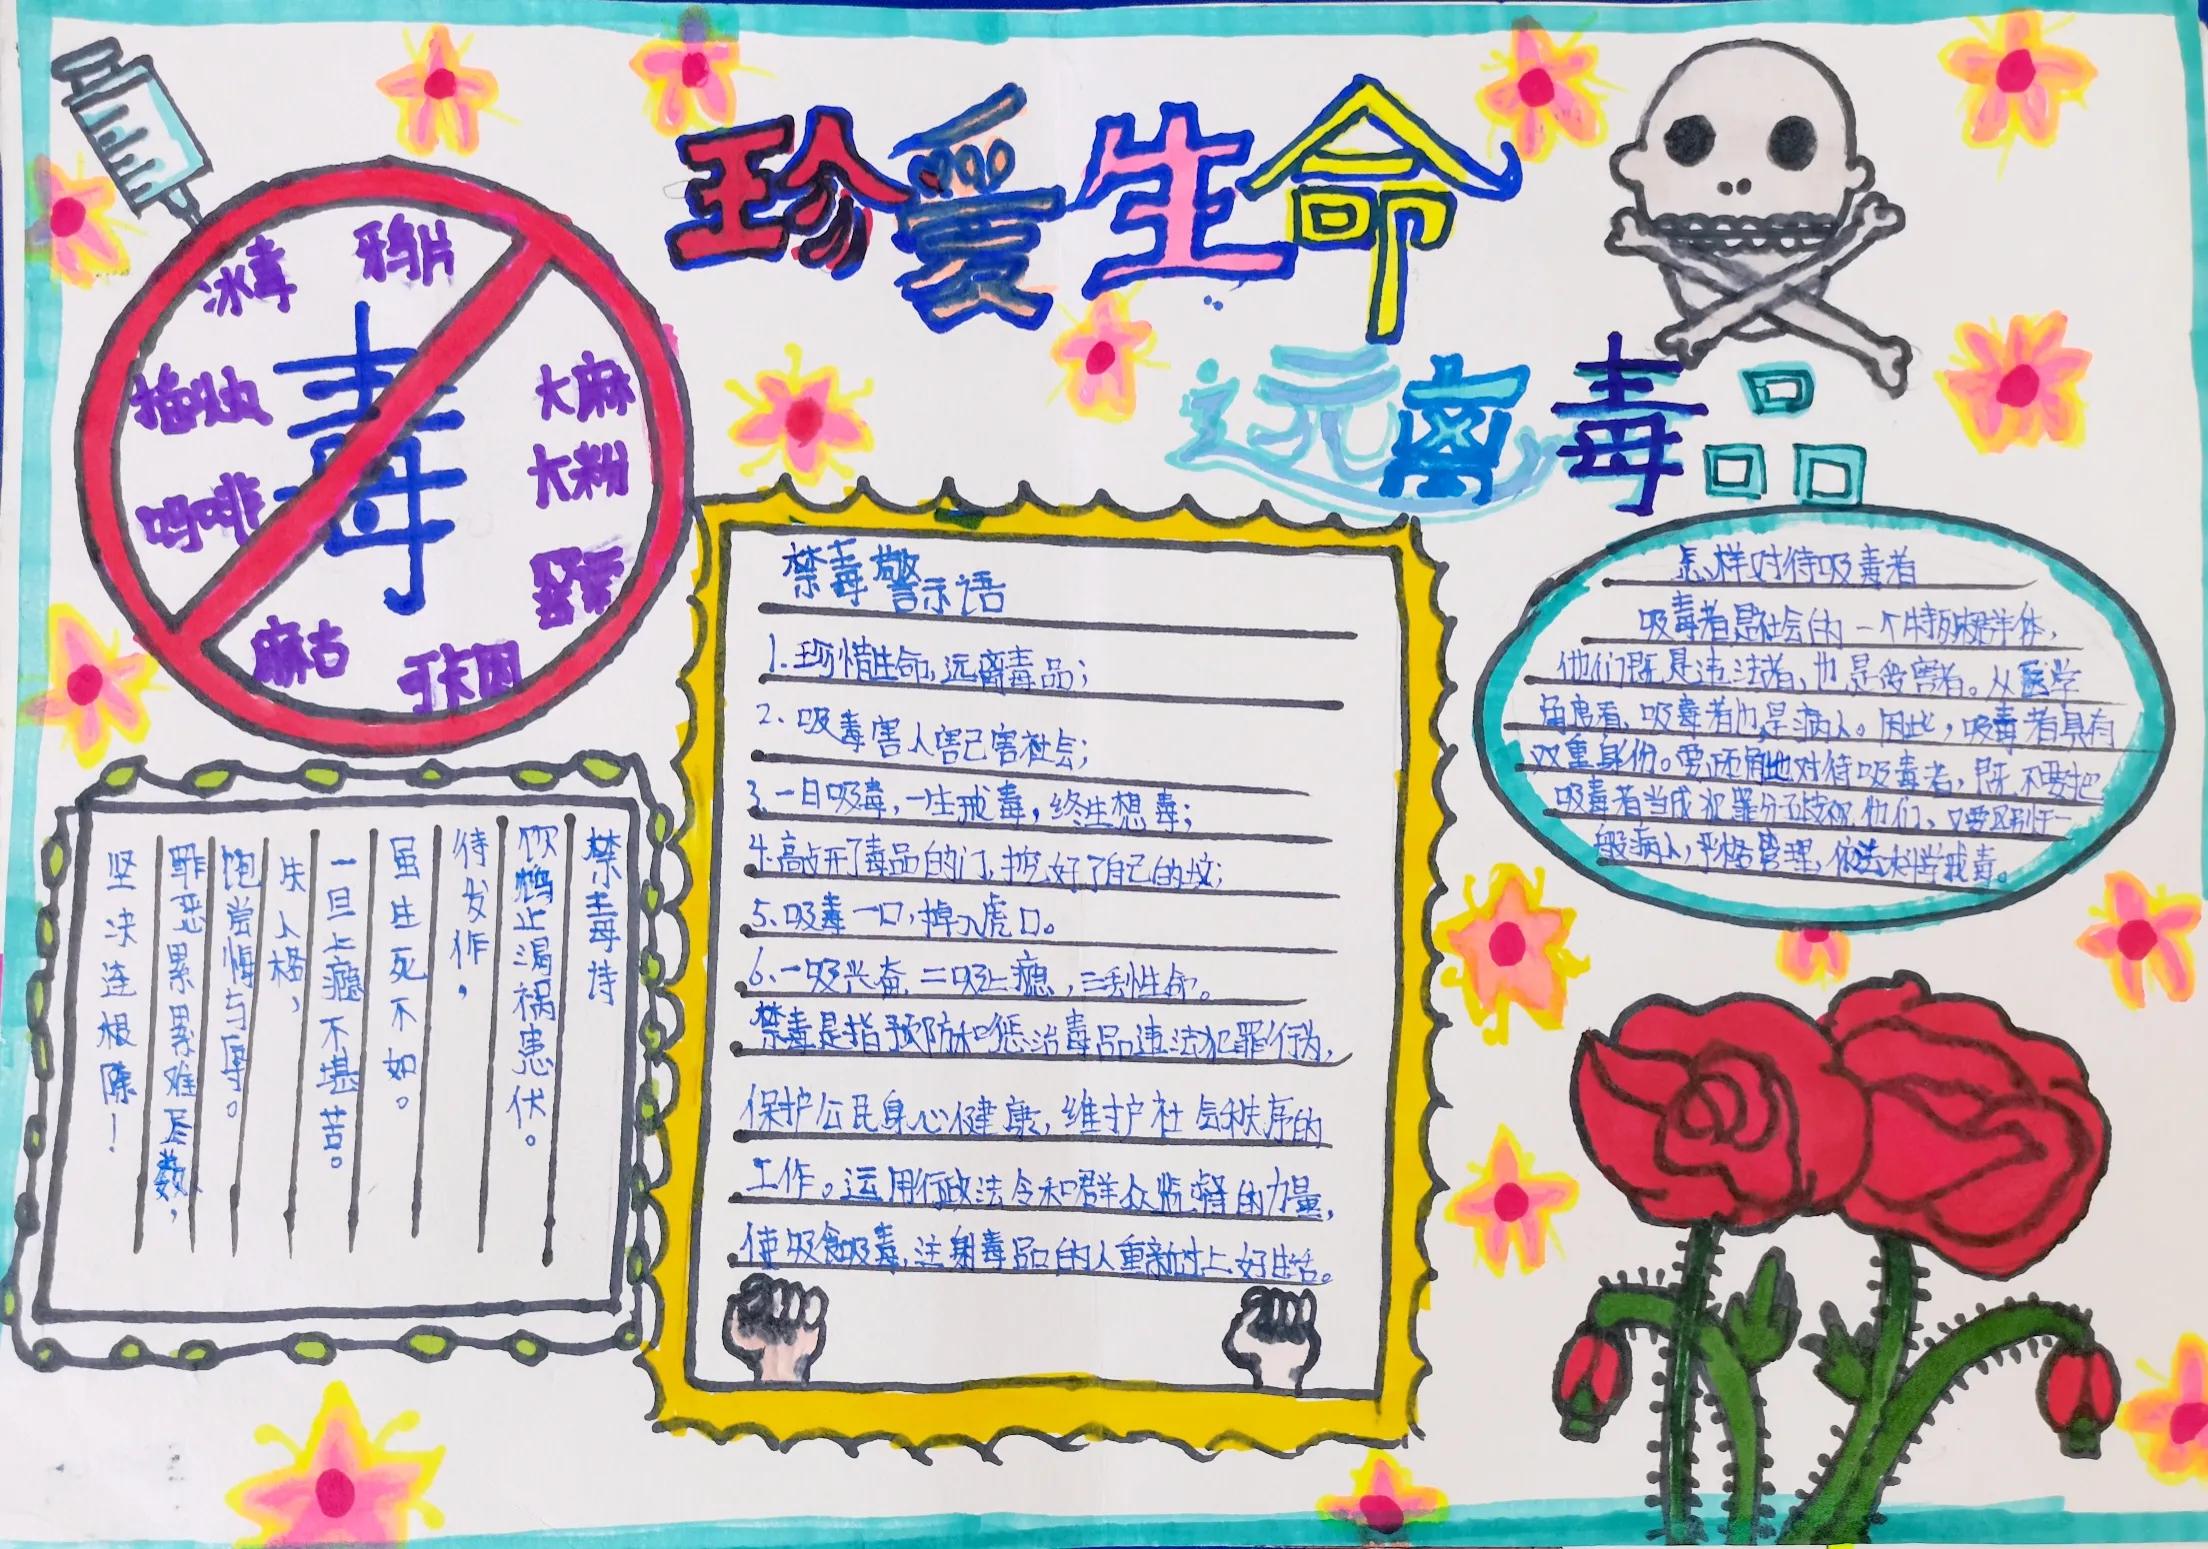 珍爱生命
远离毒品
冰毒
鸦片
毒
大麻
大粉
吗啡
罂粟
麻古
可卡因
禁毒警示语
1.珍惜生命,远离毒品;
2.吸毒害人害己害社会;
3.一日吸毒,一生戒毒,终生想毒;
4.高占开了毒品的门,挖好了自己的坟;
5.吸毒一口,掉入虎口。
6.一吸兴奋,二吸上瘾,三丢性命。
禁毒是指预防和惩治毒品违法犯罪行为,
保护公民身心健康,维护社会秩序的
工作。运用行政法令和群众监督的力量,
使吸食吸毒,注射毒品的人重新过上好生活。
怎样对待吸毒者
吸毒者是社会的一个特别群体,
他们既是违法者,也是受害者。从医学
角度看,吸毒者也是病人。因此,吸毒者具有
双重身份。要正确地对待吸毒者,既不要把
吸毒者当成犯罪分子歧视他们,又要区别于一
般病人,严格管理,依法科学戒毒。
禁毒诗
饮鸩止渴祸患伏。
待发作,
虽生死不如。
一旦上瘾不堪苦。
失人格,
饱尝悔与辱。
罪恶累累难尽数,
坚决连根除!